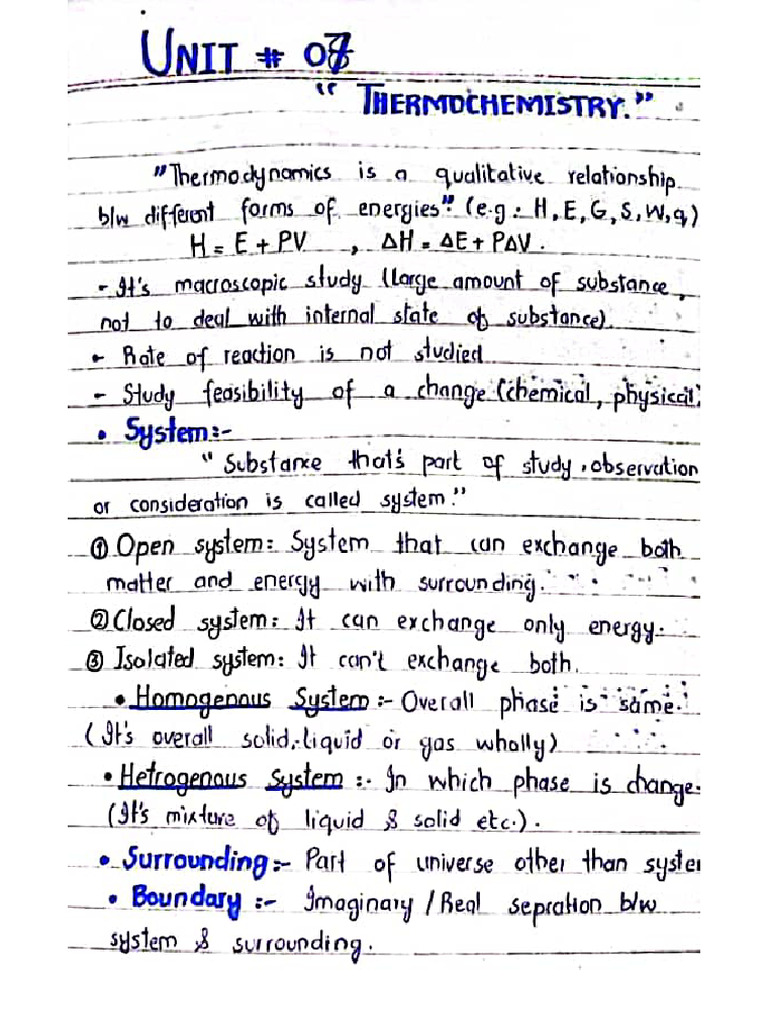 UNIT # 07
" THERMOCHEMISTRY."
"Thermodynamics is a qualitative relationship
b/w different forms of energies". (e.g:- H, E, G, S, W, q)
H = E + PV , ΔH = ΔE + PΔV.
- It's macroscopic study (large amount of substance,
not to deal with internal state of substance).
- Rate of reaction is not studied
- Study feasibility of a change (chemical, physical)
• System:-
" Substance that's part of study, observation
or consideration is called system."
① Open system: System that can exchange both
matter and energy with surrounding.
② Closed system: It can exchange only energy.
③ Isolated system: It can't exchange both.
• Homogenous System :- Overall phase is same.
(It's overall solid, liquid or gas wholly)
• Hetrogenous System :- In which phase is change.
(It's mixture of liquid & solid etc.).
• Surrounding:- Part of universe other than syste
• Boundary :- Imaginary / Real sepration b/w
system & surrounding.